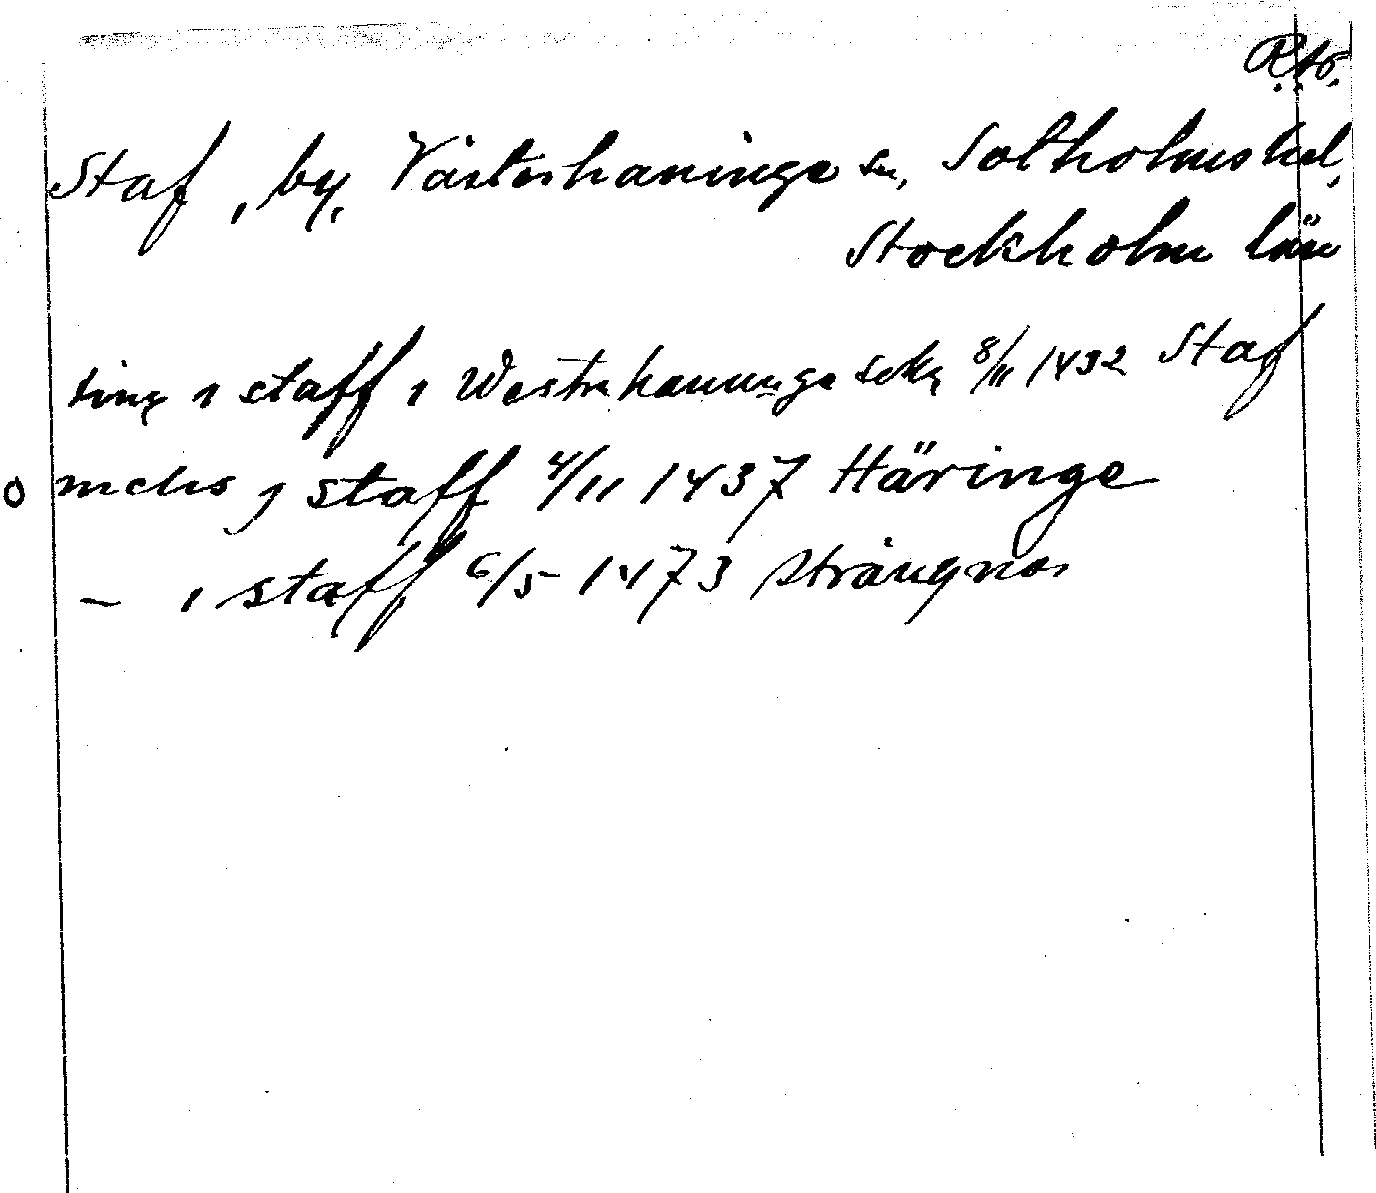 R.Ao.
Staf, by, Västerhaninge sn, Sotholms hd,
Stockholm län
ting i staff i Westrhaninge sokn 8/11 1432 Staf
nichis j staff 4/11 1437 Häringe
– i staff 6/5 1473 Strängnäs